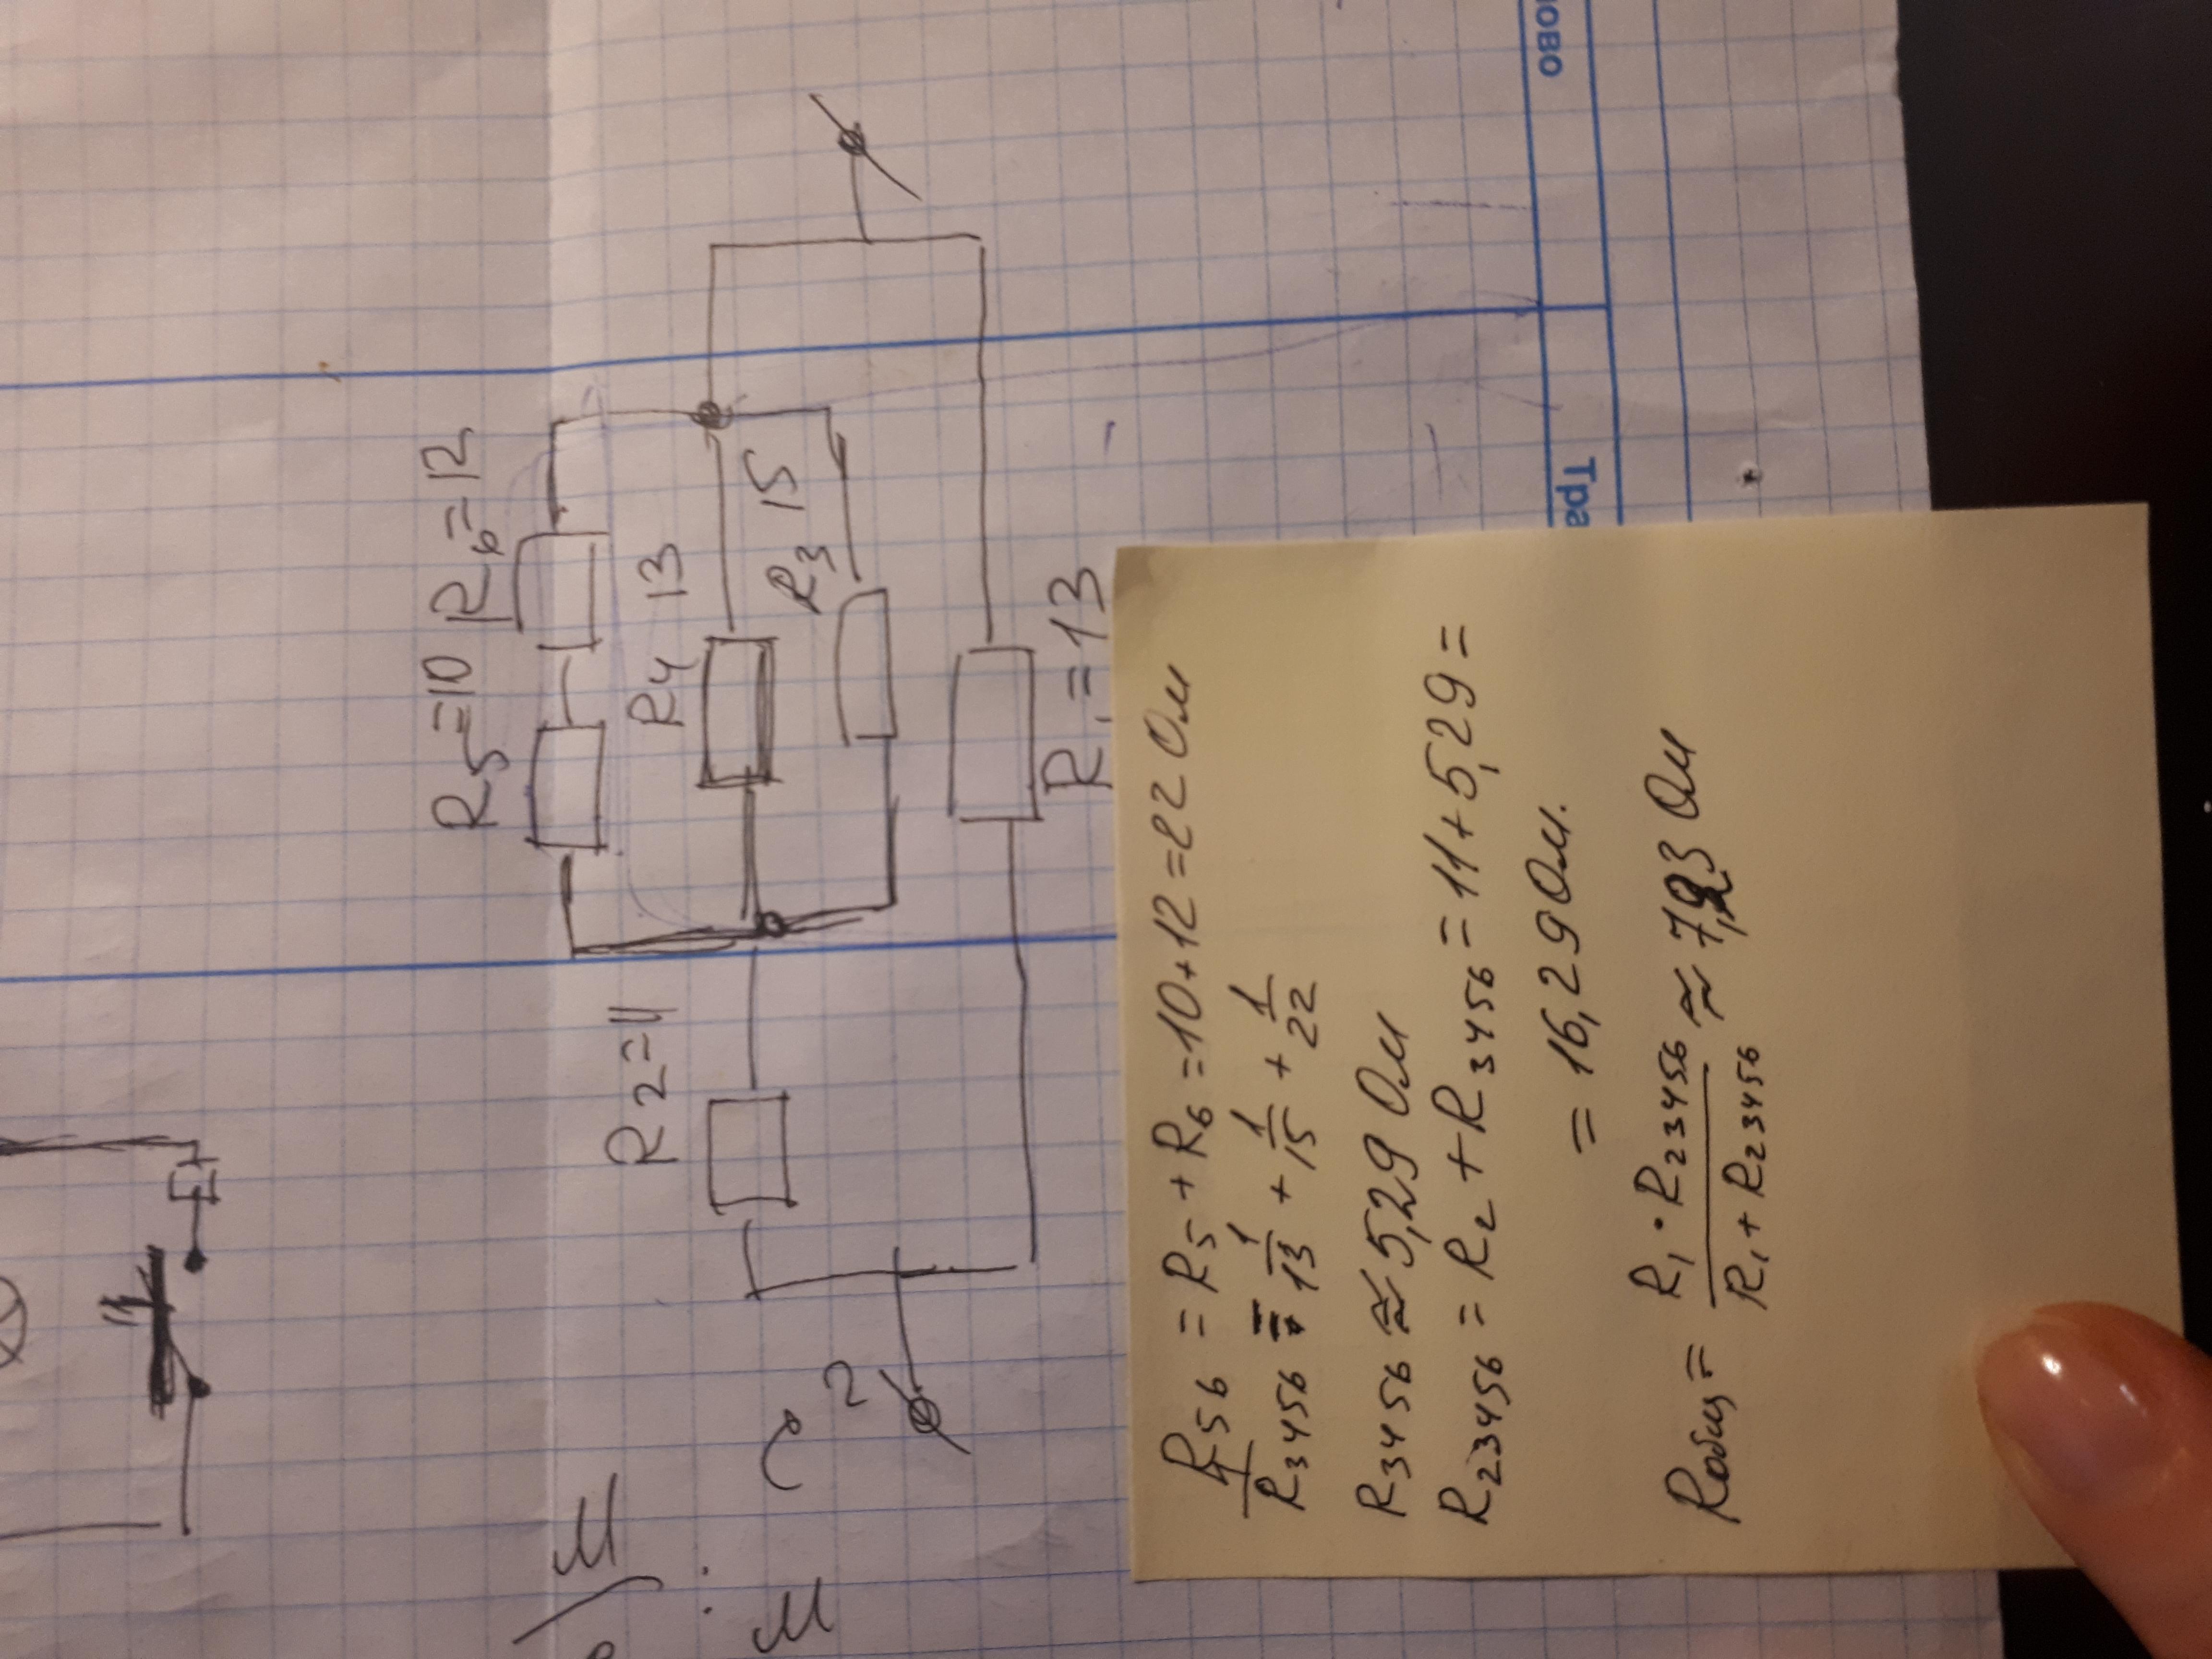 R5=10 R6=12
R4 13
R3 15
R2=11
R1=13
2
M
M
ново
Тра
R56 = R5 + R6 = 10+12=22 Ом
1/R3456 = 1/13 + 1/15 + 1/22
R3456 ≈ 5,29 Ом
R23456 = R2 + R3456 = 11+5,29 =
= 16,29 Ом.
Rобщ= R1 · R23456 / R1 + R23456 ≈ 7,23 Ом